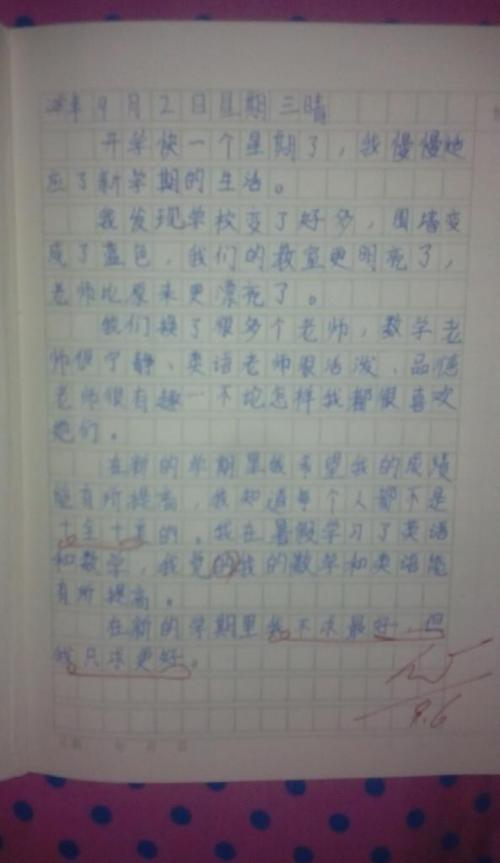 年9月2日星期三晴
开学快一个星期了，我慢慢地
应了新学期的生活。
我发现学校变了好多，围墙变
成了蓝色，我们的教室更明亮了，
老师比原来更漂亮了。
我们换了很多个老师，数学老
师很宁静、英语老师很活泼、品德
老师很有趣一不论怎样我都很喜欢
她们。
在新的学期里我希望我的成绩
能有所提高，我知道每个人都不是
十全十美的。我在暑假学习了英语
和数学，我觉的我的数学和英语能
有所提高。
在新的学期里我不求最好，但
我只求更好。
9.6
年 月 日